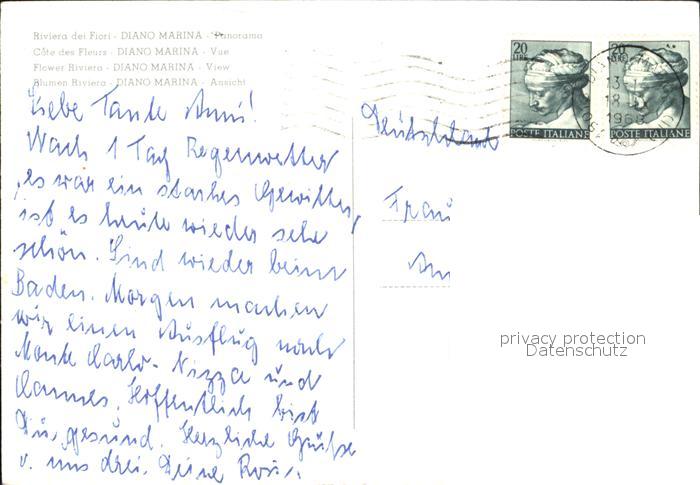 Riviera dei Fiori - DIANO MARINA - Panorama
Côte des Fleurs - DIANO MARINA - Vue
Flower Riviera - DIANO MARINA - View
Blumen Riviera - DIANO MARINA - Ansicht
Liebe Tante Anni!
Nach 1 Tag Regenwetter
, es war ein starkes Gewitter,
ist es heute wieder sehr
schön. Sind wieder beim
Baden. Morgen machen
wir einen Ausflug nach
Monte Carlo - Nizza und
Cannes. Hoffentlich bist
Du gesund. Herzliche Grüße
v. uns drei. Deine Rosi.
20 LIRE
POSTE ITALIANE
20 LIRE
POSTE ITALIANE
Deutschland
Frau
An
privacy protection
Datenschutz